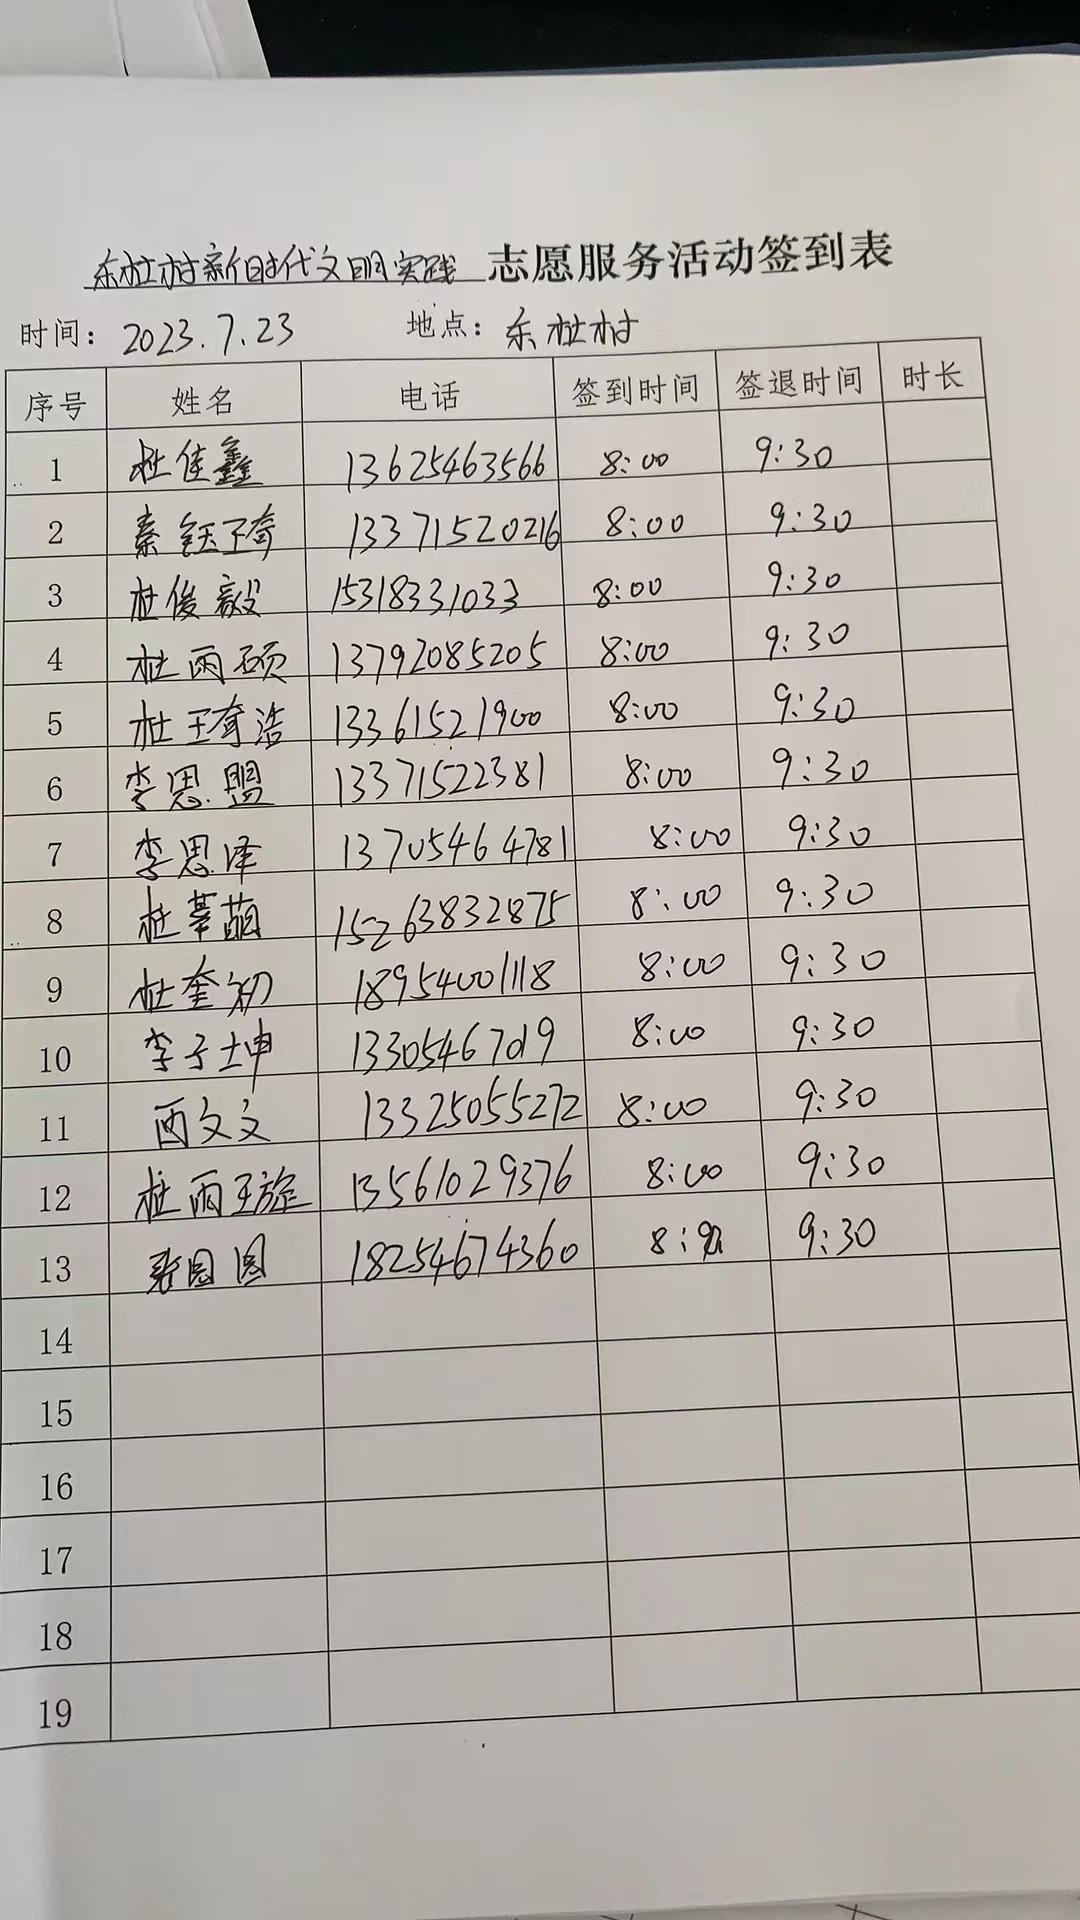 东杜村新时代文明实践 志愿服务活动签到表
时间：2023.7.23 地点：东杜村
序号 姓名 电话 签到时间 签退时间 时长
1 杜佳鑫 13625463566 8:00 9:30
2 秦钰琦 13371520216 8:00 9:30
3 杜俊毅 15318331033 8:00 9:30
4 杜雨硕 13792085205 8:00 9:30
5 杜琦浩 13361521900 8:00 9:30
6 李思盟 13371522381 8:00 9:30
7 李思泽 13705464781 8:00 9:30
8 杜莘萌 15263832875 8:00 9:30
9 杜奎初 18954001118 8:00 9:30
10 李子坤 13305467019 8:00 9:30
11 西文文 13325055272 8:00 9:30
12 杜雨璇 13561029376 8:00 9:30
13 圆圆 18254674360 9:30
14
15
16
17
18
19